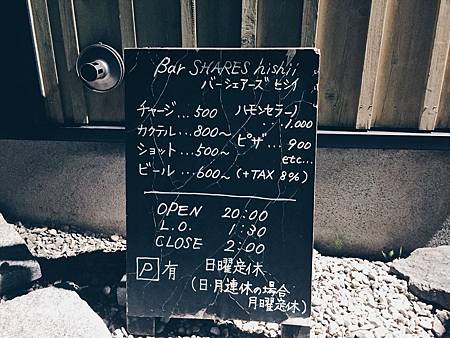 Bar SHARES hishii
バーシェアーズ ヒシイ
チャージ...500 ハモンセラーノ
カクテル...800～ ...1.000
ショット...500～ ピザ...900
etc...
ビール...600～ (+TAX 8%)
OPEN 20:00
L.O. 1:30
CLOSE 2:00
P 有 日曜定休
(日・月連休の場合
月曜定休)